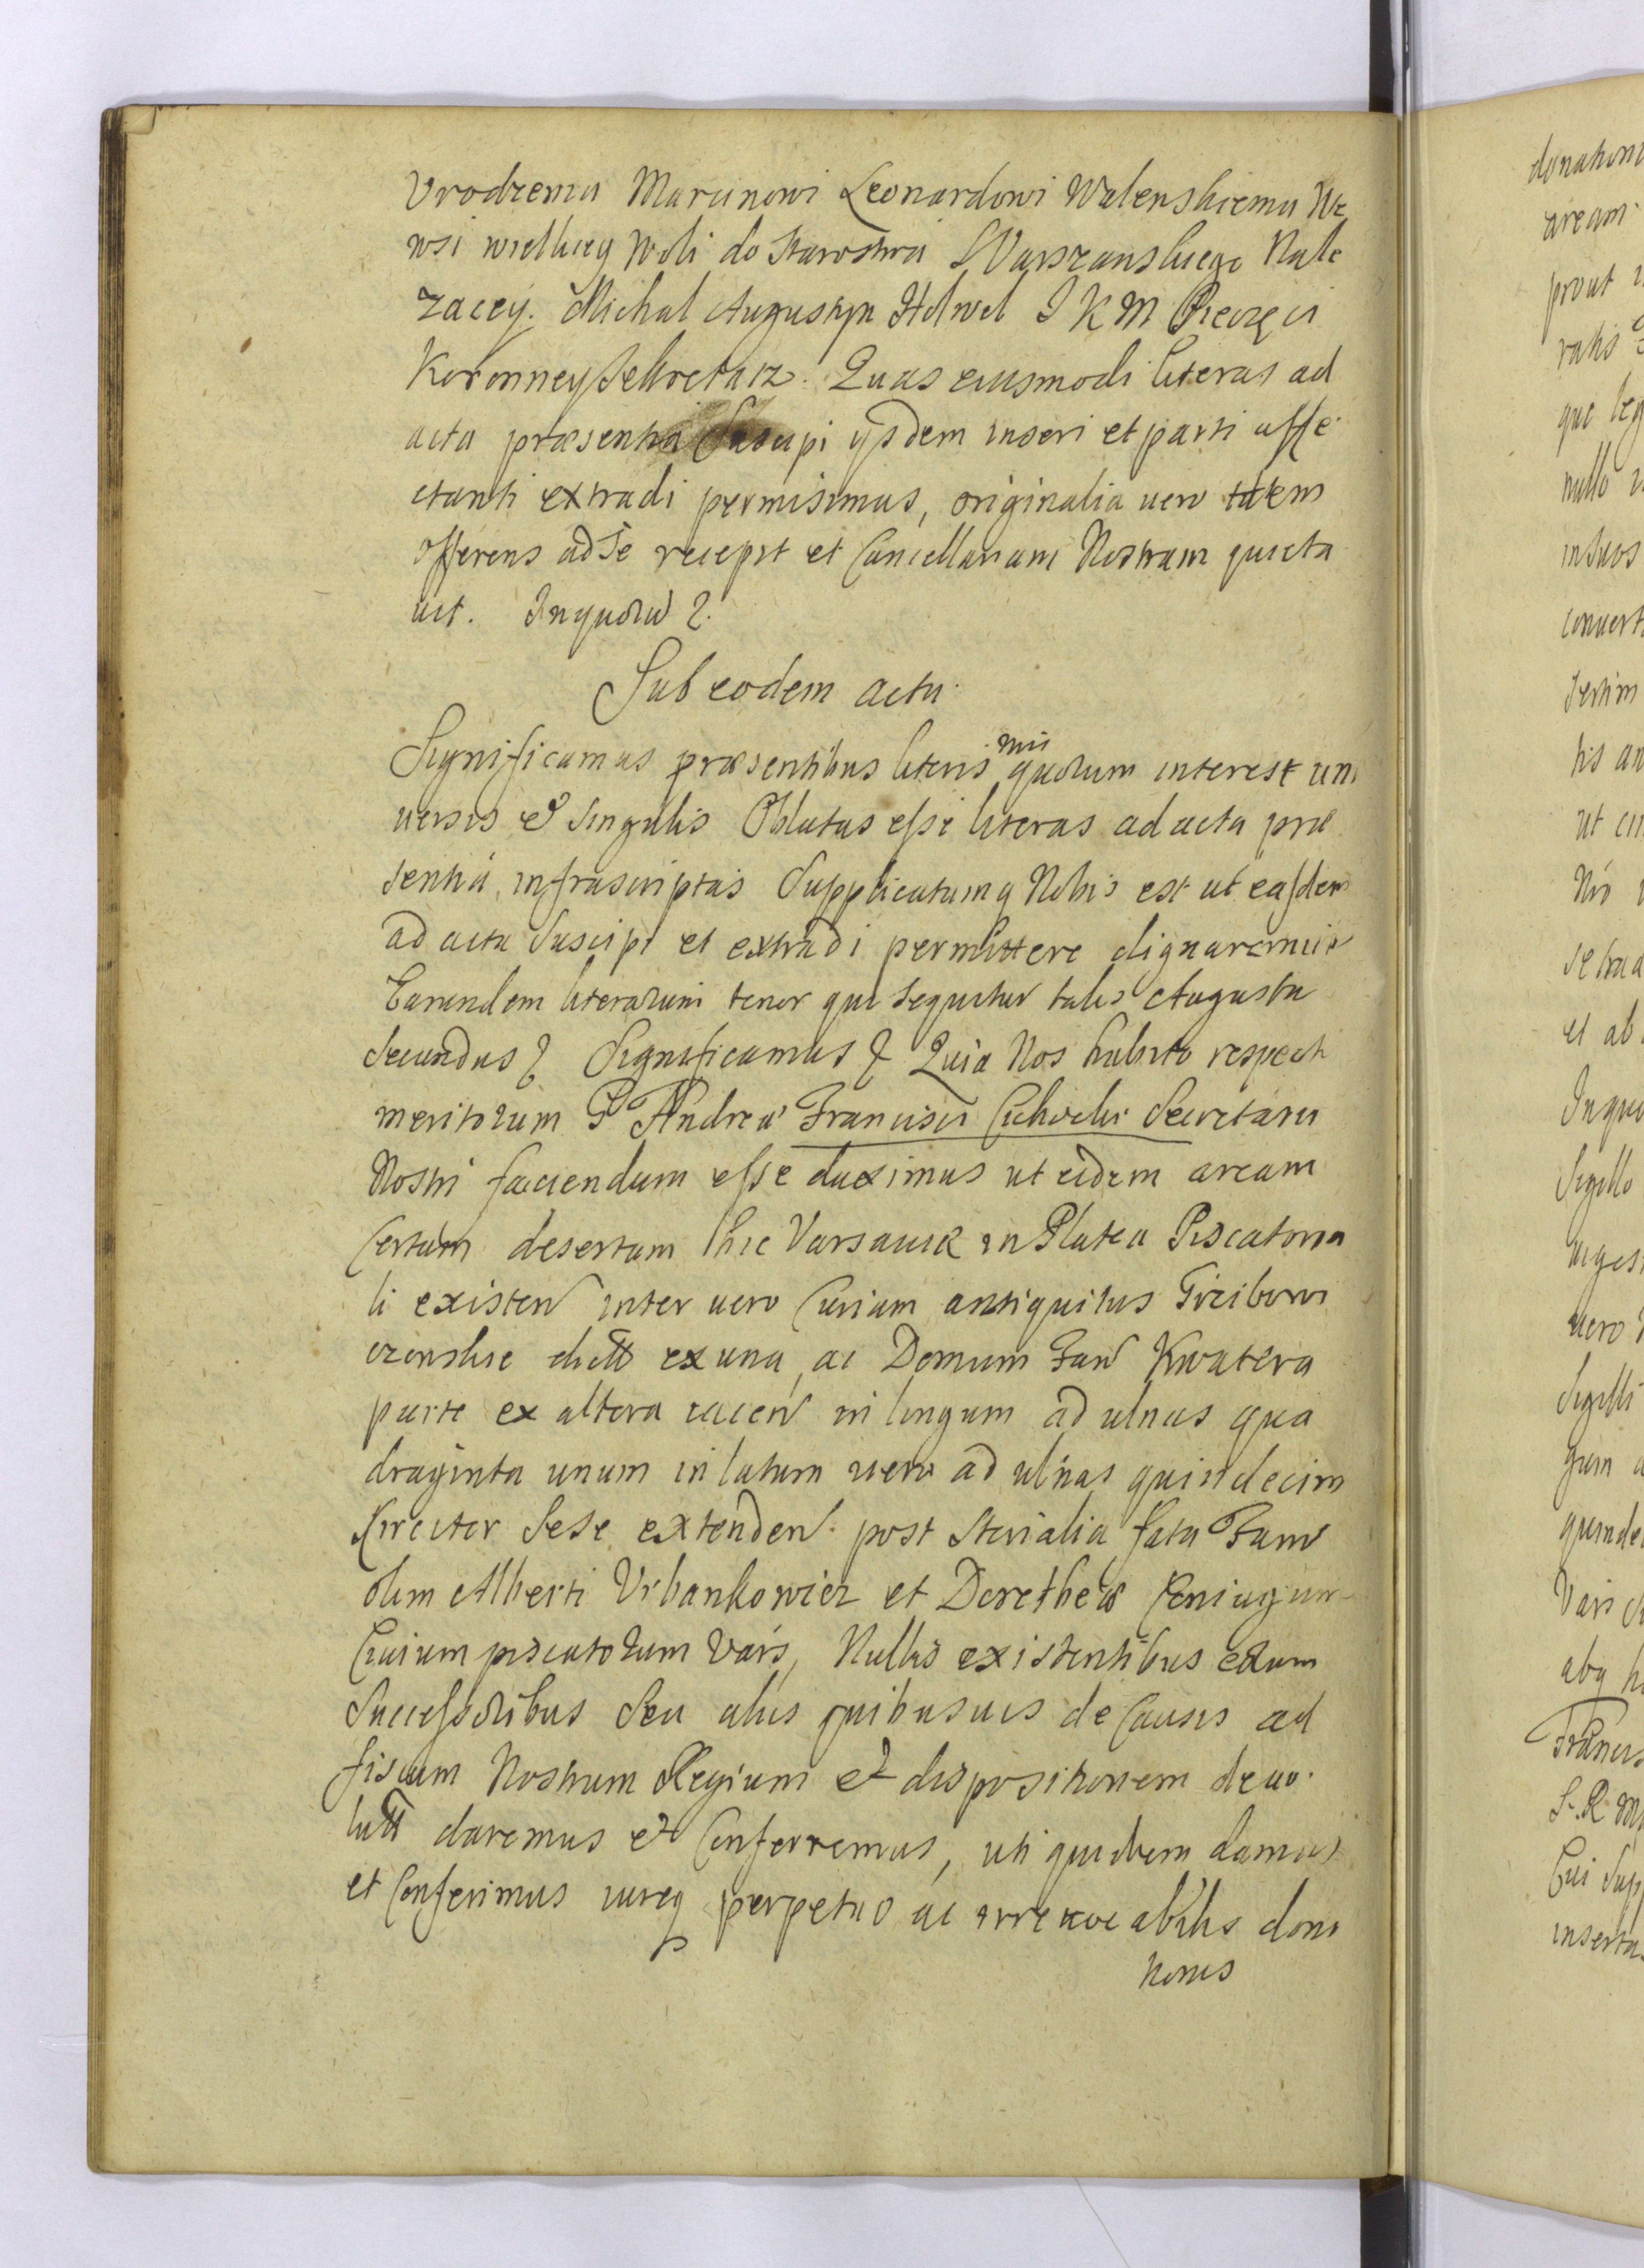 Urodzemu Marcinowi Leonardowi Walenskiemu We
wsi wielkiey Woli do Starostwa Warszawskiego Nale
zacey. Michal Augustyn Holwel J K M Pieczęci
Koronney Sekretarz. Quas eiusmodi literas ad
acta præsentia Suscipi ijsdem inseri et parti affe
ctanti extradi permisimus, originalia vero idem
offerens ad Se recepit et Cancellariam Nostram quieta
uit. Inquorũ
Sub eodem actu.
Significamus præsentibus literis nris quorum interest uni
uersis et Singulis Oblatas esse literas ad acta præ
sentia infrascriptas Supplicatumq Nobis est ut easdem
ad acta Suscipi et extradi permittere dignaremur
Earundem literarum tenor qui sequitur talis Augustu
Secundus Significamus Quia Nos habito respectu
meritorum G Andreæ Francisci Cichocki Secretarij
Nostri faciendum esse duximus ut eidem aream
Certam desertam hic Varsaviæ in Platea Piscatoria
li existen inter uero Curiam antiquitus Giziboro
czenskie dictt ex una, ac Domum Fam Kwatera
parte ex altera iacen in longum ad ulnas qua
draginta unum in latum uero ad ulnas quindecim
circiter Sese extenden. post sterialia fata Fam
olim Alberti Urbankowicz et Dorotheæ Coniugum
Ciuium piscatorum Vars, Nullis existentibus eorum
Successoribus Seu alijs quibusuis de Causis ad
fiscum Nostrum Regium et dispositionem deuo.
lutt daremus et Conferremus, uti quidem damus
et Conferimus iureq perpetuo ac irreuocabilis dona
tionis
donationi
aream
prout
ratis
que leg
nullo
in suos
conuert
sertim
tis an
ut
Nro
se tra
et ab
Inquo
Sigillo
uero
Sigilli
quinde
Vars
abq
Francis
S. R. M
Cui Sup
inserta